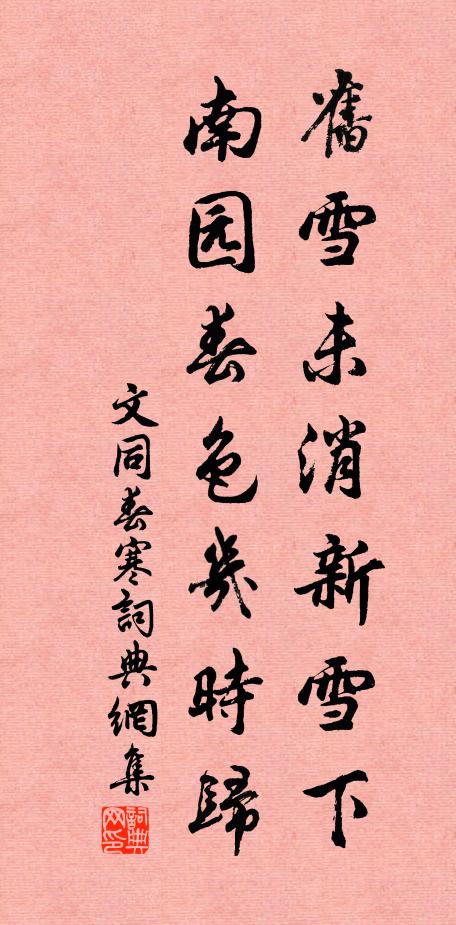 舊雪未消新雪下
南园春色幾時歸
文同春寒詞典網集
詞典网印